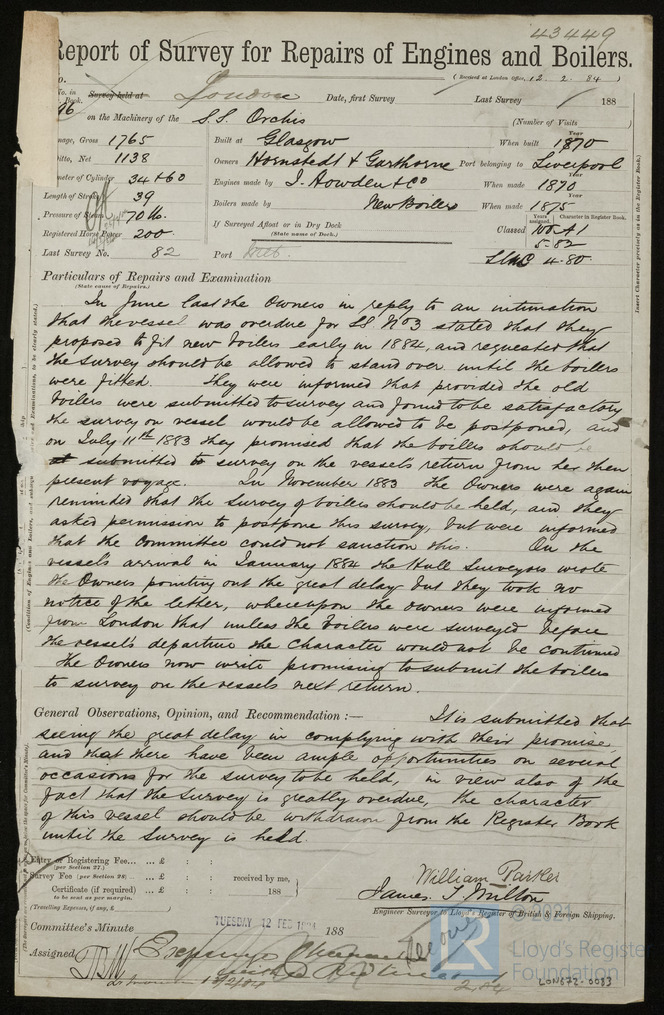 43449
Report of Survey for Repairs of Engines and Boilers.
(Received at London Office, 12. 2. 84)
No. in Book.
96
Survey held at London Date, first Survey Last Survey 188
on the Machinery of the S.S. Orchis (Number of Visits
Tonnage, Gross 1765 Built at Glasgow When built 1870
Ditto, Net 1138 Owners Hornstedt & Garthorne Port belonging to Liverpool
Diameter of Cylinder 34 + 60 Engines made by J. Howden & Co When made 1870
Length of Stroke 39 Boilers made by New Boilers When made 1875
Pressure of Steam 70 lb. If Surveyed Afloat or in Dry Dock
(State name of Dock.)
Years assigned. Character in Register Book.
Classed 100 A1
5.82
Registered Horse Power 200
Last Survey No. 82 Port
LMC 4.80
Particulars of Repairs and Examination
(State cause of Repairs.)
In June last the Owners in reply to an intimation
that the vessel was overdue for SS No 3 stated that they
proposed to fit new boilers early in 1884, and requested that
the survey should be allowed to stand over until the boilers
were fitted. They were informed that provided the old
boilers were submitted to survey and found to be satisfactory
the survey on vessel would be allowed to be postponed, and
on July 11th 1883 they promised that the boilers should be
submitted to survey on the vessels return from her then
present voyage. In November 1883 the Owners were again
reminded that the survey of boilers should be held, and they
asked permission to postpone this survey, but were informed
that the Committee could not sanction this. On the
vessels arrival in January 1884 the Hull Surveyors wrote
the Owners pointing out the great delay but they took no
notice of the letter, whereupon the owners were informed
from London that unless the boilers were surveyed before
the vessel's departure the character would not be continued
The Owners now write promising to submit the boilers
to survey on the vessels next return.
General Observations, Opinion, and Recommendation :— It is submitted that
seeing the great delay in complying with their promise,
and that there have been ample opportunities on several
occasions for the survey to be held, in view also of the
fact that the survey is greatly overdue, the character
of this vessel should be withdrawn from the Register Book
until the Survey is held.
Entry or Registering Fee... ... £ : :
(per Section 27.)
Survey Fee (per Section 28) ... ... £ : : received by me,
Certificate (if required) ... £ : : 188
to be sent as per margin.
(Travelling Expenses, if any, £ )
William Parker
James T Milton
Engineer Surveyor to Lloyd's Register of British & Foreign Shipping.
Committee's Minute TUESDAY 12 FEB 1884 188
Assigned
2.84
LON872-0033
© 2021
LR
Lloyd's Register
Foundation